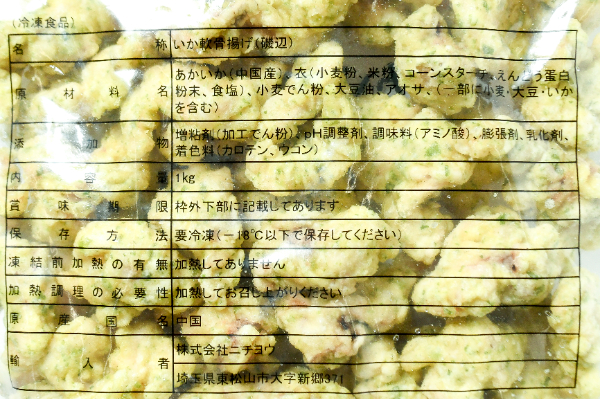 (冷凍食品)
名称 いか軟骨揚げ(磯辺)
原材料名 あかいか(中国産)、衣(小麦粉、米粉、コーンスターチ、えんどう蛋白
粉末、食塩)、小麦でん粉、大豆油、アオサ、(一部に小麦・大豆・いか
を含む)
添加物 増粘剤(加工でん粉)、pH調整剤、調味料(アミノ酸)、膨張剤、乳化剤、
着色料(カロテン、ウコン)
内容量 1kg
賞味期限 枠外下部に記載してあります
保存方法 要冷凍(-18℃以下で保存してください)
凍結前加熱の有無 加熱してありません
加熱調理の必要性 加熱してお召し上がりください
原産国名 中国
輸入者 株式会社ニチヨウ
埼玉県東松山市大字新郷371